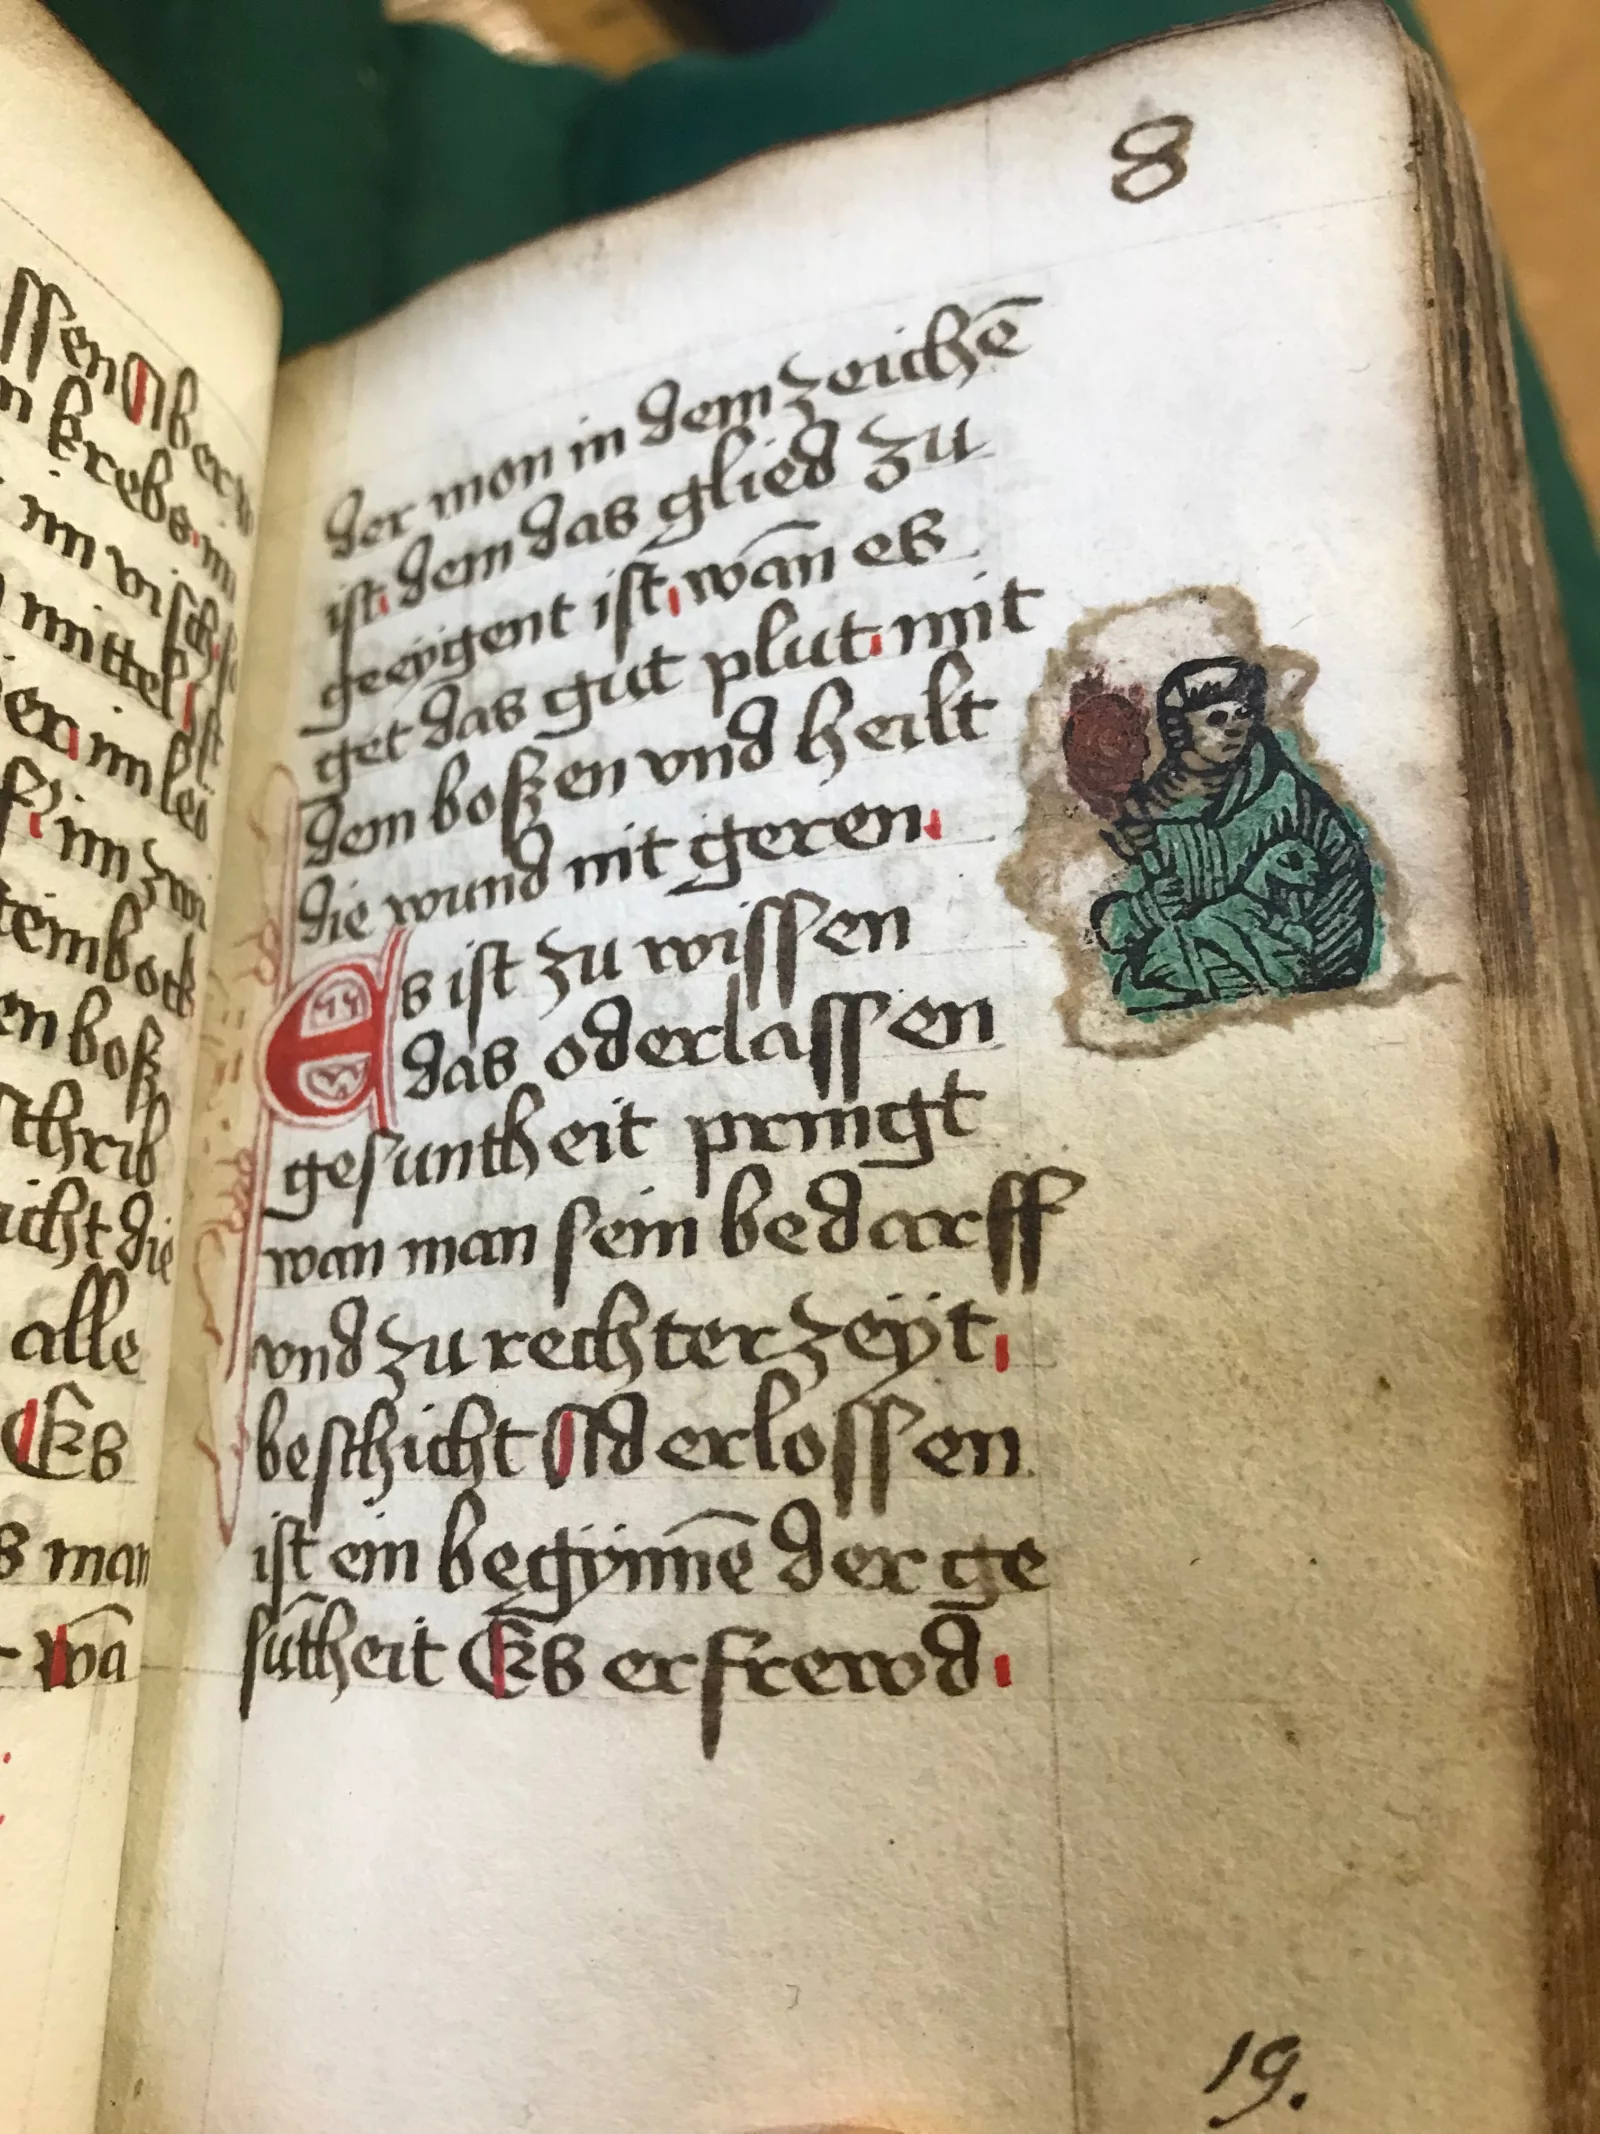 ssen Aber
krebs
im visch
mittel ist
im
im zwi
steinbock
en boß
schrib
nicht die
alle
Es
man
wā
8
der mon in dem zeichē
ist dem das glied zu
geeÿgent ist wān es
get das gut plut mit
dem boßen vnd heilt
die wund nit geren
Es ist zu wissen
das oderlassen
gesuntheit pringt
wan man sein bedarff
vnd zu rechter zeÿt
beschicht Oderlossen
ist ein begÿnnē der ge
sūtheit Es erfrewd
19.